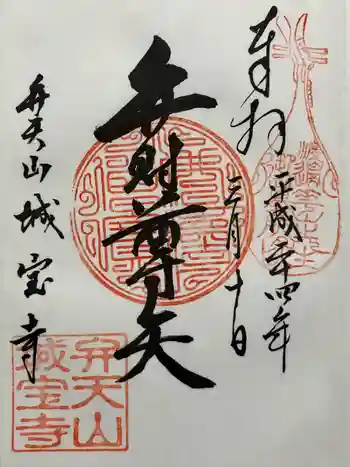 奉拝
平成二十四年
三月十日
弁財尊天
弁天山城宝寺
弁天山
城宝寺